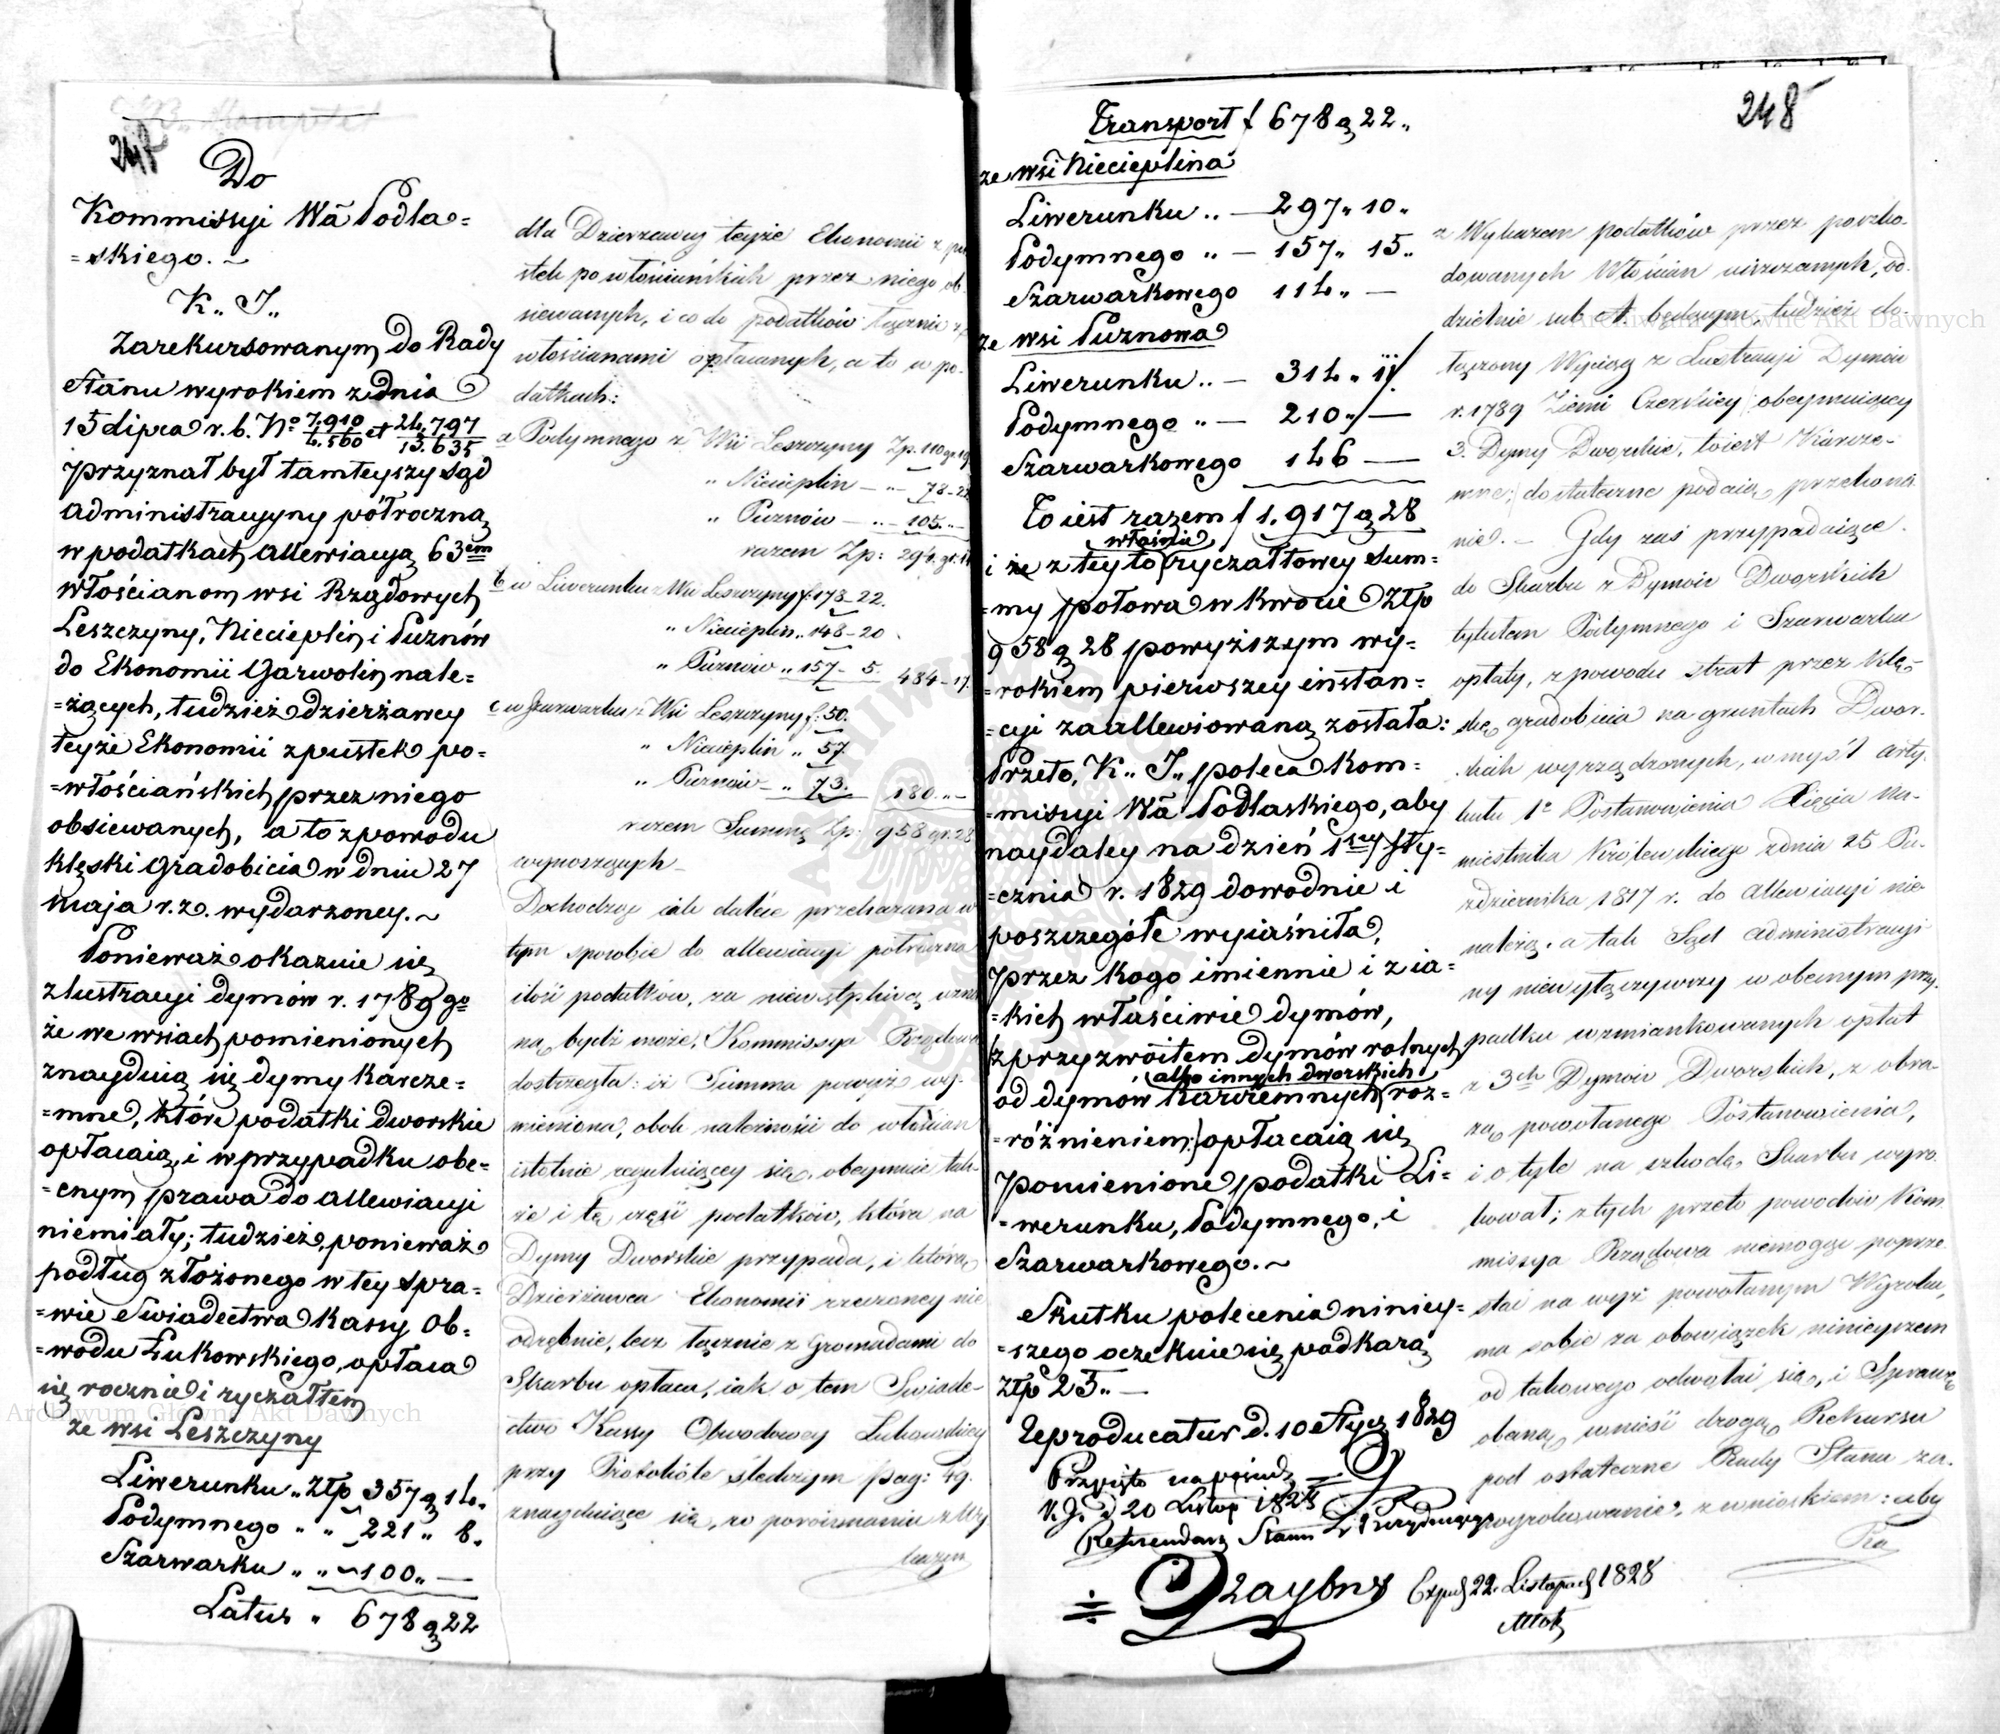 248
Do
Kommissyi Wã Podla=
=skiego. ~
K.. J..
Zarekursowanym do Rady
Stanu wyrokiem z dnia
15 lipca r. b. No 7.910/4.560 et 24.797/13.635
przyznał był tamteyszy Sąd
Administracyiny półroczną
w podatkach allewiacyą 63em
włościanom wsi Rządowych
Leszczyny, Niecieplin i Puznów
do Ekonomii Garwolin nale=
=żących, tudzież dzierżawcy
teyże Ekonomii z pustek po=
=włościańskich przez niego
obsiewanych, a to z powodu
klęski gradobicia w dniu 27
Maja r. z. wydarzoney. ~
Ponieważ okazuie się
z lustracyi dymów r. 1789go
że we wsiach pomienionych
znayduią się dymy karcze=
=mne, które podatki dworskie
opłacaią, i w przypadku obe=
=cnym prawa do allewiacyi
niemiały; tudzież, ponieważ
podług złożonego w tey spra=
=wie Swiadectwa Kassy Ob=
=wodu Łukowskiego, opłaca
się rocznie i ryczałtem
ze wsi Leszczyny
Liwerunku „ Złp 357 g 14„
Podymnego „ „ 221 „ 8„
Szarwarku „ „ 100 „ —
Latus „ 678 g 22
dla Dzierzawcy teyże Ekonomii z pu
stek po włościańskich przez niego ob
siewanych, i co do podatków łącznie z
włościanami opłacanych, a to w po=
datkach:
a Podymnego z Wsi Leszczyny Zp. 110 gr. 19
„ Niecieplin — „ — 78 - 22
„ Puznów — „ — 105. „ —
razem Zp: 294. gr. 11
b w Liwerunku z Wsi Leszczyny f 178 - 22.
„ Niecieplin „ 148 - 20
„ Puznów „ 157 - 5. 484 - 17
c w Szarwarku z Wsi Leszczyny f. 50.
„ Niecieplin „ 57.
„ Puznów — „ 73. 180 „ —
razem Summę Zp: 958 gr. 28
wynoszących —
Dochodząc iak dalece przekazana w
tym sposobie do allewiacyi półroczna
ilość podatków, za niewątpliwą uzna
ną bydź może, Kommissya Rządowa
dostrzegła: iż Summa powyż wy=
mieniona, obok należności do włościan
istotnie regulującey się, obeymuie tak
że i tę część podatków, która na
Dymy Dworskie przypada, i którą
Dzierżawca Ekonomii rzeczoney nie
odrębnie, lecz łącznie z Gromadami do
Skarbu opłaca, iak o tem Swiade=
ctwo Kassy Obwodowey Łukowskiey
przy Protokóle śledczym pag: 49.
znayduiące się, po porównaniu z Wy
kazem
248
Transport f 678 g 22 „
ze wsi Niecieplina
Liwerunku .. — 297 „ 10 „
Podymnego .. — 157 „ 15 „
Szarwarkowego 114 „ —
ze wsi Puznowa
Liwerunku .. — 314 „ 11
Podymnego .. — 210 „ —
Szarwarkowego 146 —
To iest razem f 1.917 g 28
właśnie
i że z tey to ryczałtowey Sum=
=my połowa w kwocie Złp
958 g 28 powyższym wy=
=rokiem pierwszey instan=
=cyi zaallewiowaną została:
Przeto, K.. J.. poleca Kom=
missyi Wã Podlaskiego, aby
naydaley na dzień 1szy Sty=
=cznia r. 1829 dowodnie i
poszczególe wyiaśniła,
przez kogo imiennie i z ia=
=kich właściwie dymów,
(z przyzwoitem dymów rolnych
albo innych dworskich
od dymów karczemnych roz=
=różnieniem) opłacaią się
pomienione podatki Li=
=werunku, Podymnego, i
Szarwarkowego. ~
Skutku polecenia niniey=
=szego oczekuie się pod karą
złp 25 „ —
Reproducatur d. 10 Stycz 1829
Przyięto na posiedz
K. J. d 20 Listop 1828
Referendarz Stanu
Expd 22 Listopad 1828
z Wykazem podatków przez poszko=
dowanych Włościan uiszczanych, od=
dzielnie sub A. będącym, tudzież do=
łączony Wyciąg z Lustracyi Dymów
r. 1789 Ziemi Czerskiey (obeymuiący
3. Dymy Dworskie, to iest Karcze=
mne,) dostateczne podaią przekona
nie. — Gdy zaś przypadaiące
do Skarbu z Dymów Dworskich
tytułem Podymnego i Szarwarku
opłaty, z powodu strat przez klę=
skę gradobicia na gruntach Dwor=
skich wyrządzonych, w myśl arty=
kułu 1o Postanowienia Xięcia Na=
miestnika Królewskiego z dnia 25 Pa=
zdziernika 1817 r. do allewiacyi nie
należą, a tak Sąd Administracyi
ny niewyłączywszy w obecnym przy=
padku wzmiankowanych opłat
z 3ch Dymów Dworskich, z obra=
zą powołanego Postanowienia,
i o tyle na szkodę Skarbu wyro
kował; z tych przeto powodów Kom
missya Rządowa niemogąc poprze
stać na wyż powołanym Wyroku,
ma sobie za obowiązek ninieyszem
od takowego odwołać się, i Sprawę
obecną wnieść drogą Rekursu
pod ostateczne Rady Stanu za=
wyrokowanie, z wnioskiem: aby
Ra
Archiwum Główne Akt Dawnych
Archiwum Główne Akt Dawnych